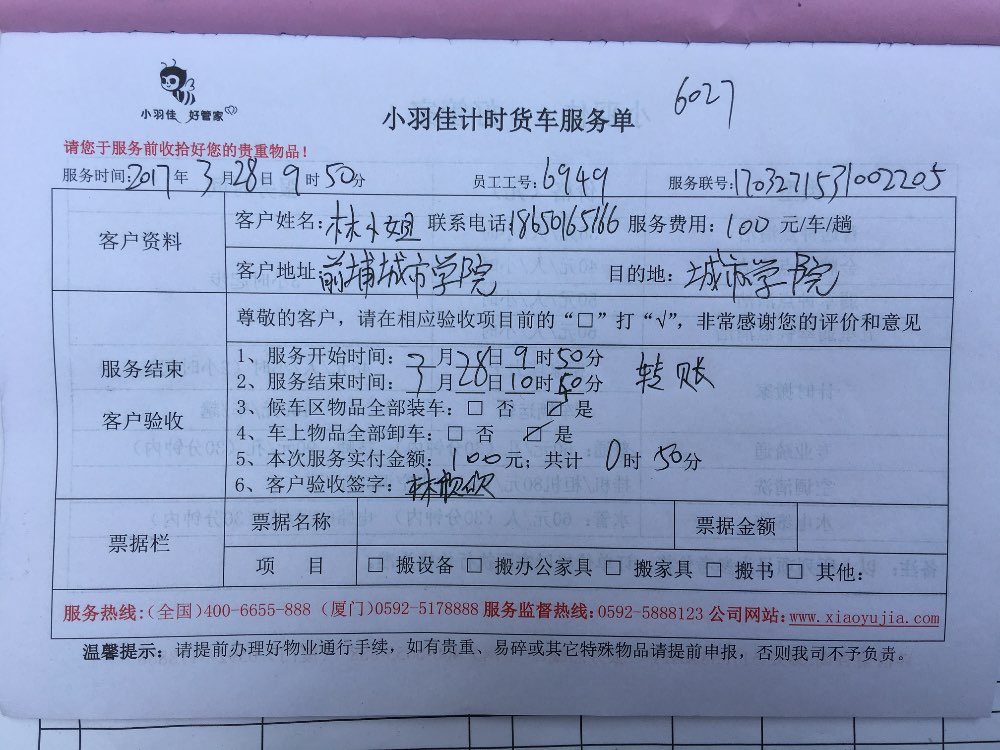 小羽佳 好管家
小羽佳计时货车服务单
6027
请您于服务前收拾好您的贵重物品！
服务时间:2017年3月28日9时50分 员工工号:6949 服务联号:1703271531002205
客户资料
客户姓名:林小姐 联系电话:18650165166 服务费用:100元/车/趟
客户地址:前埔城市学院 目的地:城市学院
服务结束
客户验收
尊敬的客户，请在相应验收项目前的“□”打“√”，非常感谢您的评价和意见
1、服务开始时间: 3月28日9时50分
转账
2、服务结束时间: 3月28日10时50分
3、候车区物品全部装车: □ 否 ☑ 是
4、车上物品全部卸车: □ 否 ☑ 是
5、本次服务实付金额: 100元; 共计 0时50分
6、客户验收签字: 林
票据栏
票据名称 票据金额
项 目 □ 搬设备 □ 搬办公家具 □ 搬家具 □ 搬书 □ 其他:
服务热线:(全国)400-6655-888 (厦门)0592-5178888 服务监督热线:0592-5888123 公司网站:www.xiaoyujia.com
温馨提示: 请提前办理好物业通行手续，如有贵重、易碎或其它特殊物品请提前申报，否则我司不予负责。